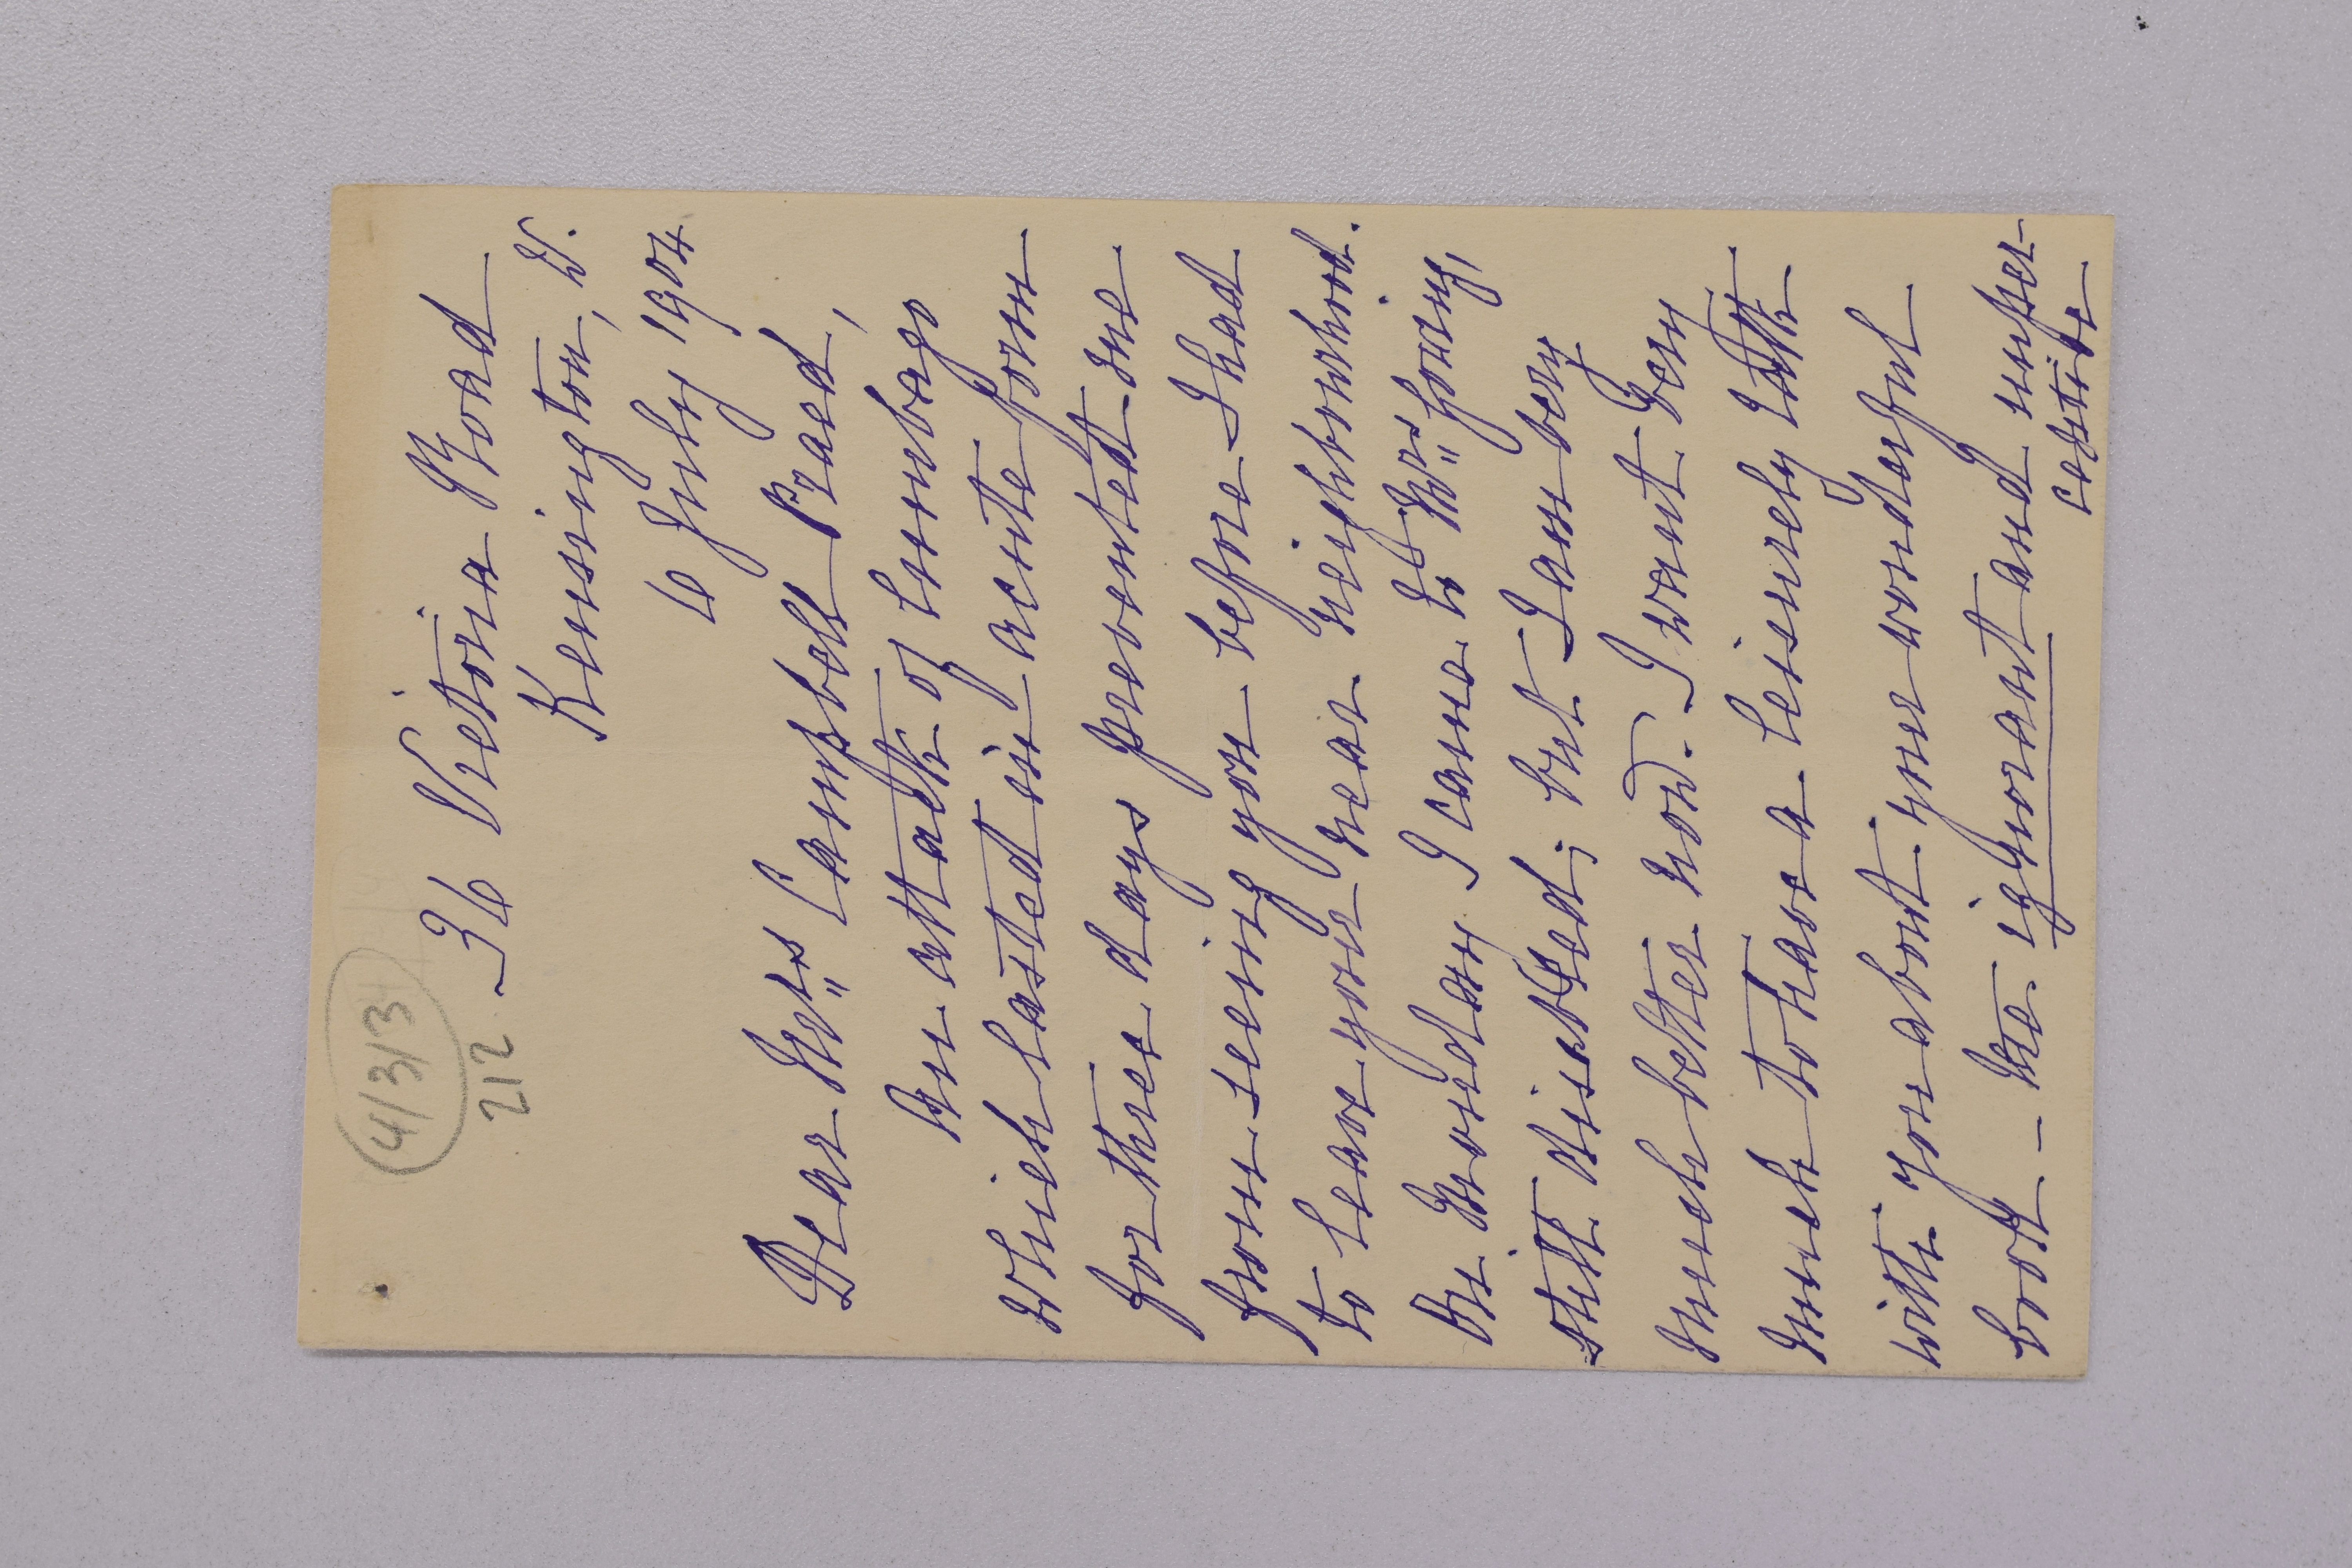 4/3/3
212
36 Victoria Road
Kensington, W.
6 July 1904
Dear Mrs Campbell Praed,
An attack of lumbago
which lasted in acute form
for three days prevented me
from seeing you before I had
to leave your near neighbourhood.
On Monday I came to Mrs
still disabled; but I am very
much better now. I want very
much to have a leisurely talk
with you about your wonderful
book – the ignorant and unper-
ceptive